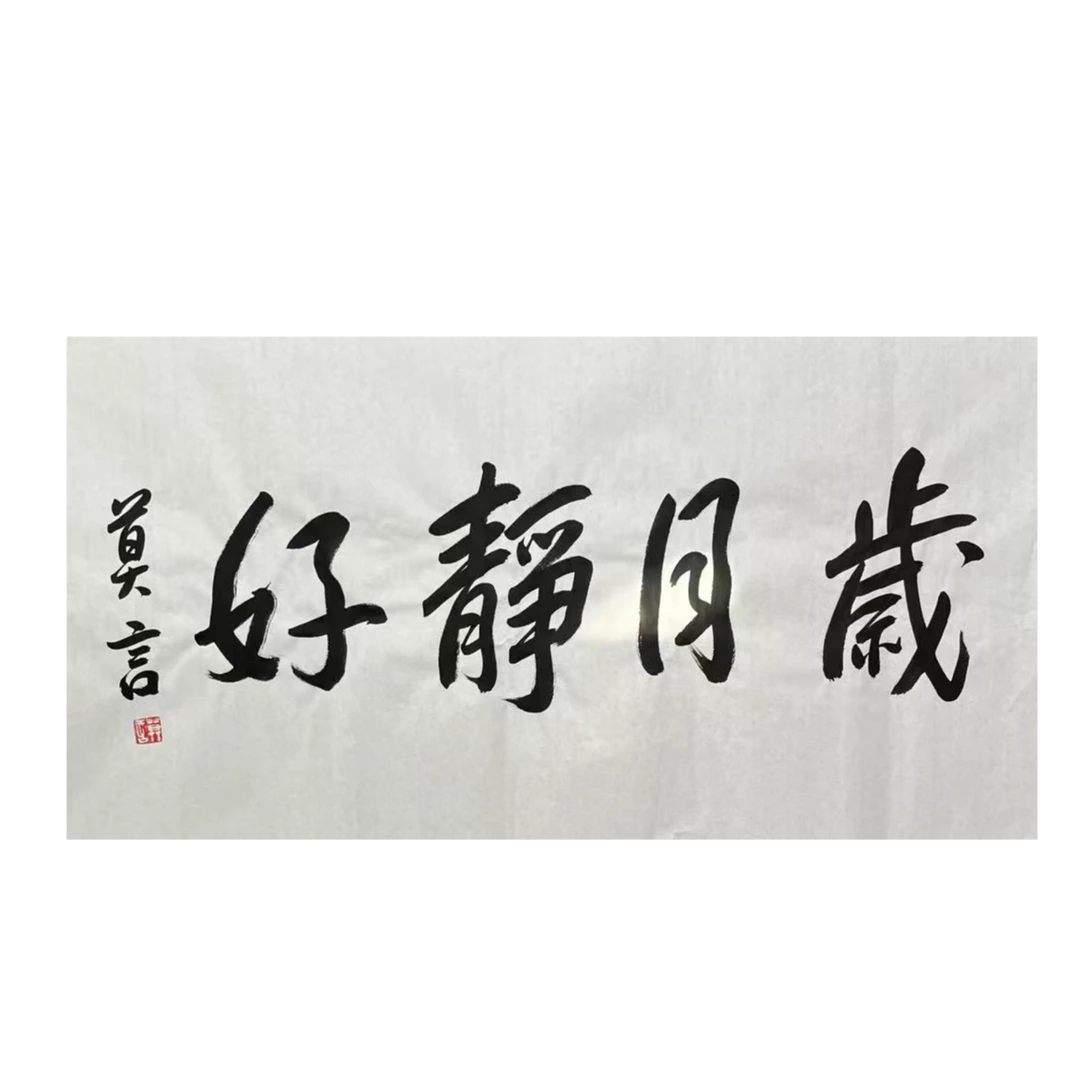 歲月靜好
莫言